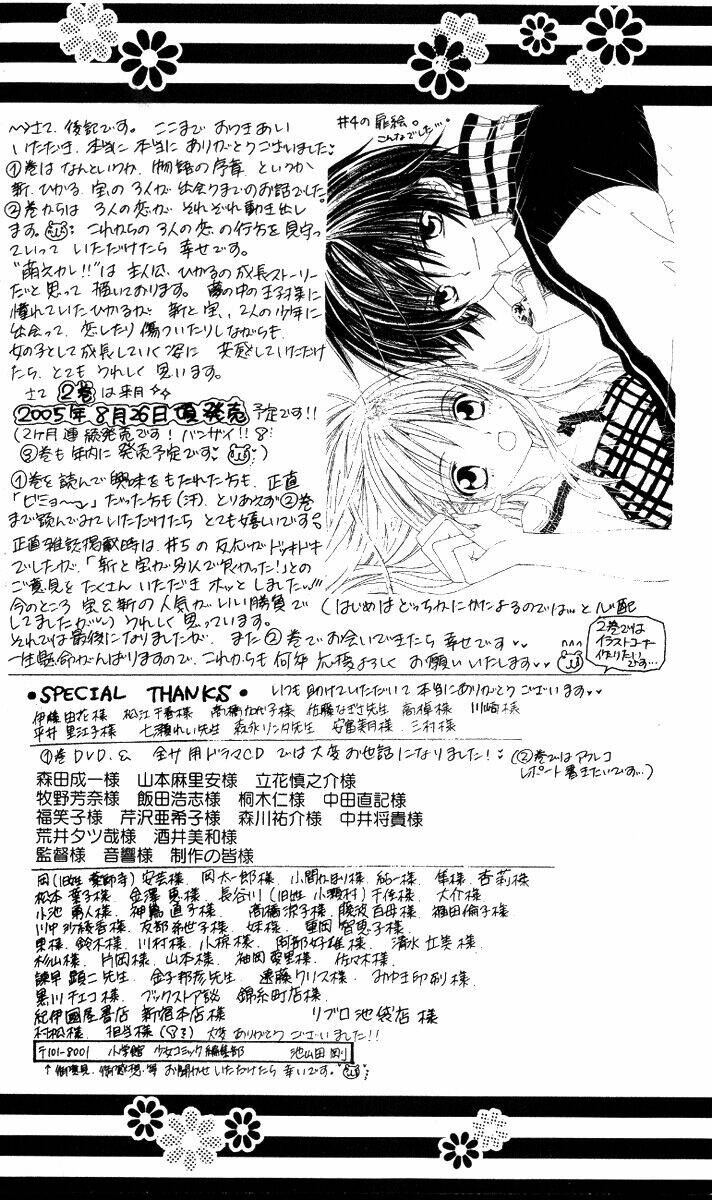 さて、後記です。ここまでおつきあい
いただき、本当に本当にありがとうございました
①巻はなんというか、物語の序章というか
新、ひかる、宝の3人が出会うまでのお話でした。
②巻からは3人の恋がそれぞれ動き出し
ます。これからの3人の恋の行方を見守っ
ていって いただけたら 幸せです。
"萌えカレ!!"は主人公、ひかるの成長ストーリー
だと思って描いております。夢の中の王子様に
憧れていたひかるが 新と宝、2人の少年に
出会って、恋したり傷ついたりしながらも
女の子として成長していく姿に 共感していただけ
たら、とてもうれしく思います。
さて 2巻 は来月
2005年8月26日頃発売 予定です!!
(2ヶ月連続発売です!バンザイ!!
③巻も年内に発売予定です)
①巻を読んで興味をもたれた方も、正直
「ビミョ〜」だった方も(汗)、とりあえず②巻
まで読んでみていただけたらとても嬉しいです。
正直雑誌掲載時は、#5の反応がドッキドキ
でしたが、「新と宝が別人で良かった!」との
ご意見をたくさんいただきホッとしました
今のところ宝&新の人気がいい勝負で (はじめはどっちかにかたよるのでは…と心配
してましたが) うれしく思っています。
それでは最後になりましたが、また②巻でお会いできたら幸せです
一生懸命がんばりますので、これからも何卒応援よろしくお願いいたします
#4の扉絵。
こんなでした…。
2巻では
イラストコーナー
作りたい
です…
•SPECIAL THANKS• いつも助けていただいて本当にありがとうございます
伊藤由花様 松江千春様 高橋加代子様 佐藤なぎさ先生 高梨様 川崎様
平井里江子様 七瀬れい先生 森永リンタ先生 安富美月様 三村様
①巻DVD、& 全サ用ドラマCDでは大変お世話になりました! (②巻ではアフレコ
レポート書きたいです…)
森田成一様 山本麻里安様 立花慎之介様
牧野芳奈様 飯田浩志様 桐木仁様 中田直記様
福笑子様 芹沢亜希子様 森川祐介様 中井将貴様
荒井夕ツ哉様 酒井美和様
監督様 音響様 制作の皆様
岡(旧姓 薬師寺)安芸様 岡太一郎様 小関かほり様 純一様 隼様 杏莉様
松本 葉子様 金澤 恵様 長谷川(旧姓 小瀬村)千佳様 大介様
小池勇人様 神蔦直子様 高橋涼子様 難波百母様 福田倫子様
川中沙綾香様 友部希世子様 妹様 重岡智恵子様
東様 鈴木様 川村様 小椋様 阿部好雄様 清水仕美様
杉山様 片岡様 山本様 袖岡愛里様 佐々木様
諫早顕二先生 金子邦彦先生 遠藤クリス様 みゆき印刷様
黒川チエコ様 ブックストア談 錦糸町店様
紀伊國屋書店 新宿本店様 リブロ池袋店様
村松様 担当様 大変ありがとうございました!!
〒101-8001 小学館 少女コミック編集部 池山田 剛
↑御意見、御感想等 お聞かせいただけたら幸いです。